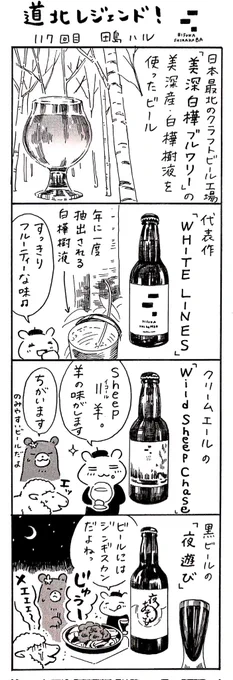 道北レジェンド!
117回目 田島ハル
BIFUKA
SHIRAKABA
日本最北のクラフトビール工場
「美深白樺ブルワリー」の
美深産・白樺樹液を
使ったビール
代表作
「WHITE LINES」
年に一度
抽出される
白樺樹液
すっきり
フルーティーな味わい
クリームエールの
「Wild Sheep Chase」
Sheep
イコール
=羊。
羊の味がします
ちがいます
のみやすいビールだよ
エッ
黒ビールの
「夜遊び」
夜遊び
ビールには
ジンギスカン
だよねっ
じゅうー
メエェェ!